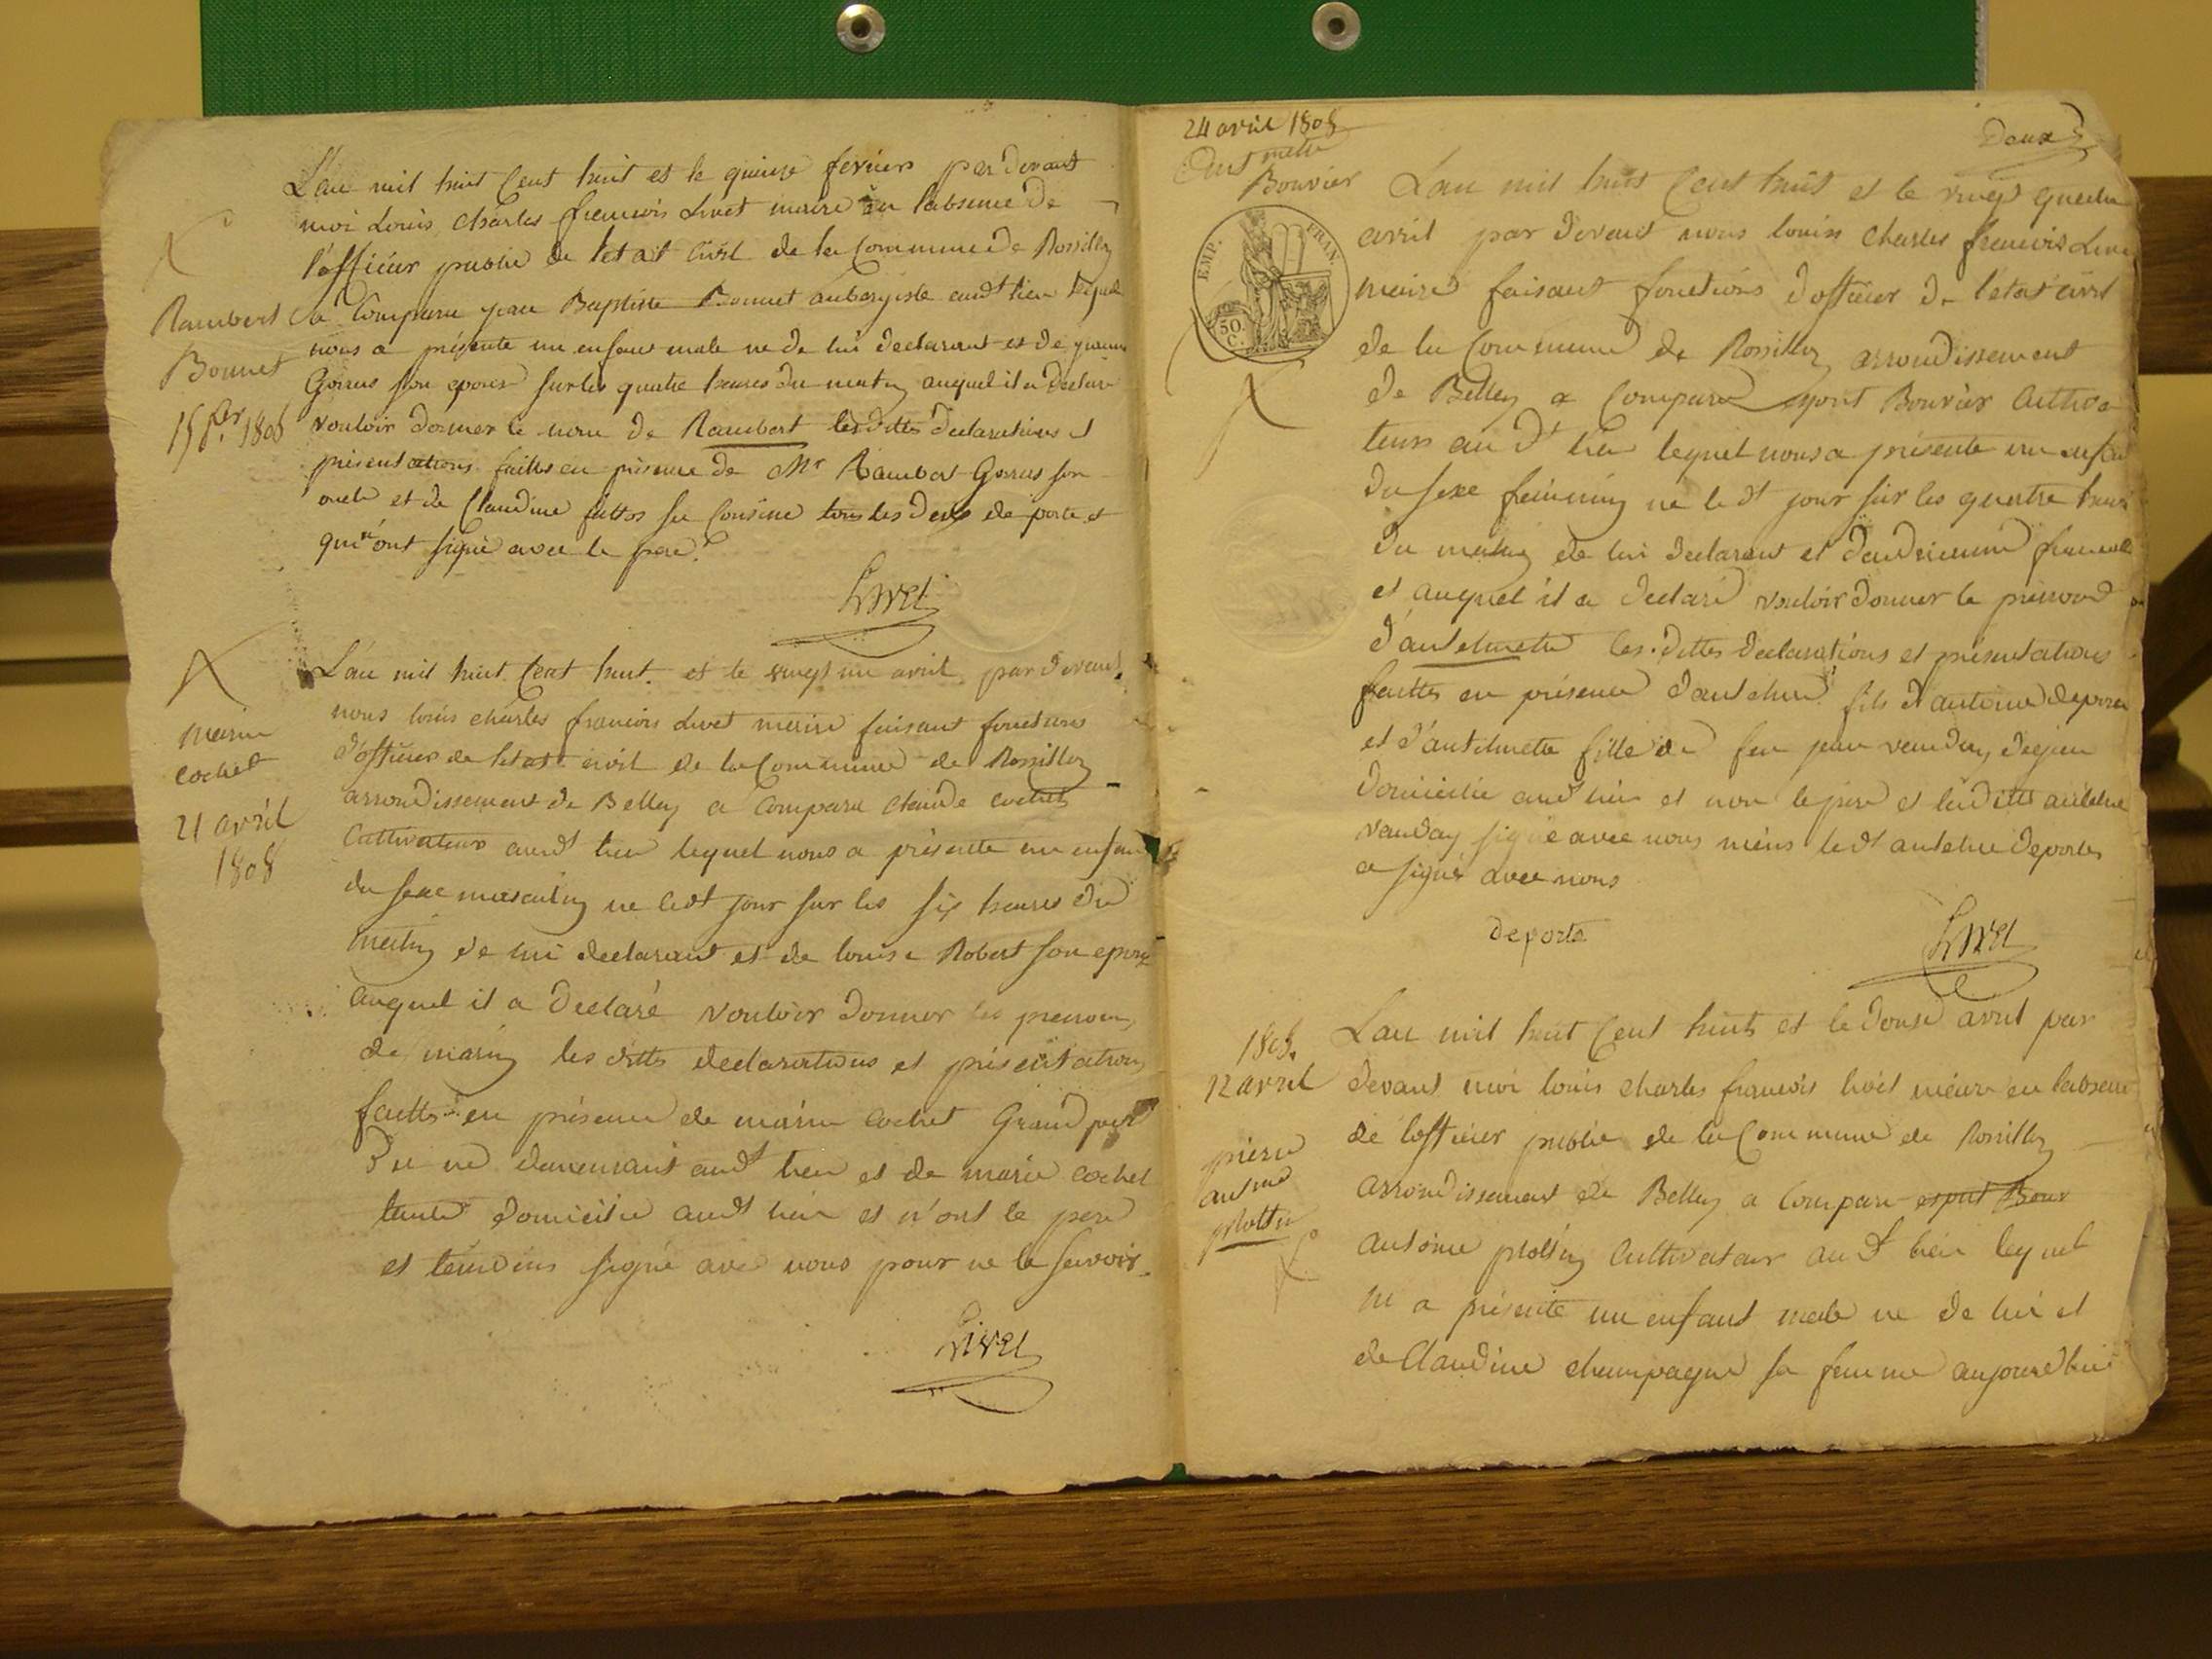 L'an mil huit Cent huit et le quinze fevrier par devant
moi Louis Charles francois Livet maire en labsence de
l'officier public de l'etat Civil de la Commune de Rossillon
a Comparu jean Baptiste Bonnet aubergiste audt lieu lequel
nous a présenté un enfant male ne de lui declarant et de
Gorrus son epouse sur les quatre heures du matin auquel il a Declare
vouloir donner le nom de Rambert lesdittes declarations et
présentations faittes en présence de Mr Rambert Gorrus son
oncle et de Claudine sa Cousine tous les deux de porte et
qui n'ont signé avec le pere
Livet
Rambert
Bonnet
15 fer 1808
L'an mil huit Cent huit et le vingt un avril par devant
nous louis charles francois Livet maire faisant fonctions
d'officier de letat civil de la Commune de Rossillon
arrondissement de Belley a Comparu claude cochet
Cultivateur audt lieu lequel nous a présenté un enfant
du sexe masculin ne ledt jour sur les six heures du
matin de lui declarant et de louise Robert son epouse
auquel il a Declaré vouloir donner le prenom
de marin les dittes declarations et présentations
faittes en présence de marin cochet Grand pere
du ne demeurant audt lieu et de marie cochet
tante domicilie audt lieu et n'ont le pere
et temoins signé avec nous pour ne le savoir
Livet
marin
cochet
21 avril
1808
Deux
24 avril 1808
Bouvier
EMP. FRAN.
50.
C.
L'an mil huit Cent huit et le vingt quatre
avril par devant nous louis charles francois Livet
maire faisant fonctions d'officier de l'etat civil
de la Commune de Rossillon arrondissement
de Belley a Comparu esprit Bouvier Cultiva
teur au dt lieu lequel nous a présenté un enfant
du sexe feminin ne le dt jour sur les quatre heures
du matin de lui declarant et
et auquel il a declaré vouloir donner le prenom
d'antelmette les dittes declarations et présentations
faittes en présence d'antelme fils d'antoine deporte
et d'antelmette fille de feu jean vauday
domicilie audt lieu et non le pere et
vauday signé avec nous mais ledt antelme deportes
a signé avec nous
deporte
Livet
1808.
12 avril
pierre
antme
plottin
L'an mil huit Cent huit et le douse avril par
devant moi louis charles francois livet maire en labsence
de l'officier public de la Commune de Rossillon
arrondissement de Belley a Comparu esprit Bouv
antoine plottin Cultivateur au dt lieu lequel
m a présenté un enfant male ne de lui et
de Claudine champagne sa femme aujourdhui